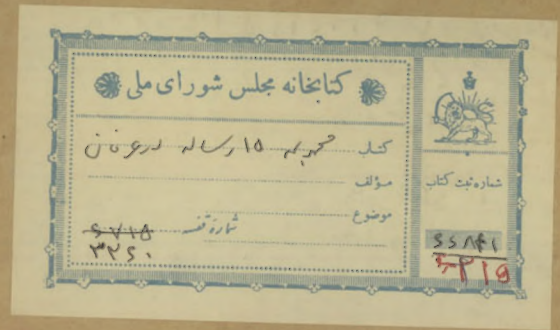 کتابخانه مجلس شورای ملی
کتاب مجموعه ۱۵ رساله در عرفان
مؤلف
موضوع
شماره قفسه
۳۲۶۰
شماره ثبت کتاب